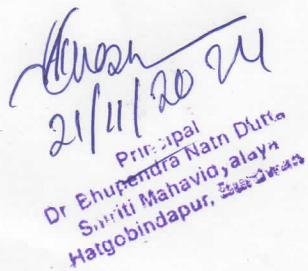 21/11/2024
Principal
Dr Bhupendra Nath Dutta
Smriti Mahavidyalaya
Hatgobindapur, Burdwan